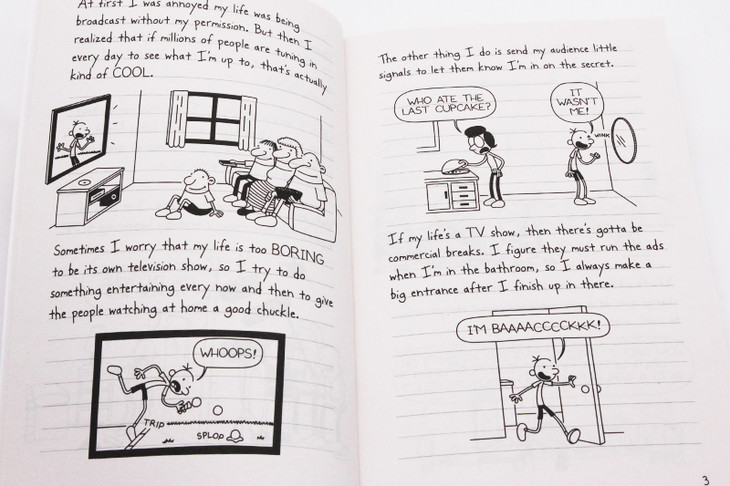 At first I was annoyed my life was being
broadcast without my permission. But then I
realized that if millions of people are tuning in
every day to see what I'm up to, that's actually
kind of COOL.
Sometimes I worry that my life is too BORING
to be its own television show, so I try to do
something entertaining every now and then to give
the people watching at home a good chuckle.
WHOOPS!
TRIP
SPLOP
The other thing I do is send my audience little
signals to let them know I'm in on the secret.
WHO ATE THE
LAST CUPCAKE?
IT
WASN'T
ME!
WINK
If my life's a TV show, then there's gotta be
commercial breaks. I figure they must run the ads
when I'm in the bathroom, so I always make a
big entrance after I finish up in there.
I'M BAAAACCCCKKK!
3